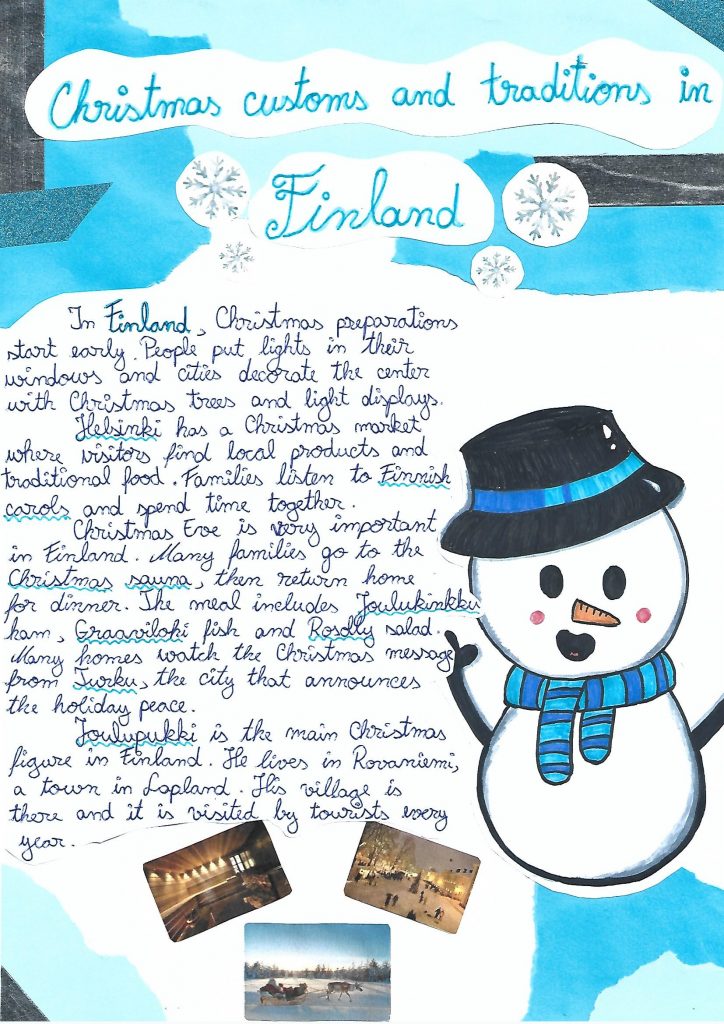 Christmas customs and traditions in
Finland
In Finland, Christmas preparations
start early. People put lights in their
windows and cities decorate the center
with Christmas trees and light displays.
Helsinki has a Christmas market
where visitors find local products and
traditional food. Families listen to Finnish
carols and spend time together.
Christmas Eve is very important
in Finland. Many families go to the
Christmas sauna, then return home
for dinner. The meal includes Joulukinkku
ham, Graavilohi fish and Rosolly salad.
Many homes watch the Christmas message
from Turku, the city that announces
the holiday peace.
Joulupukki is the main Christmas
figure in Finland. He lives in Rovaniemi,
a town in Lapland. His village is
there and it is visited by tourists every
year.